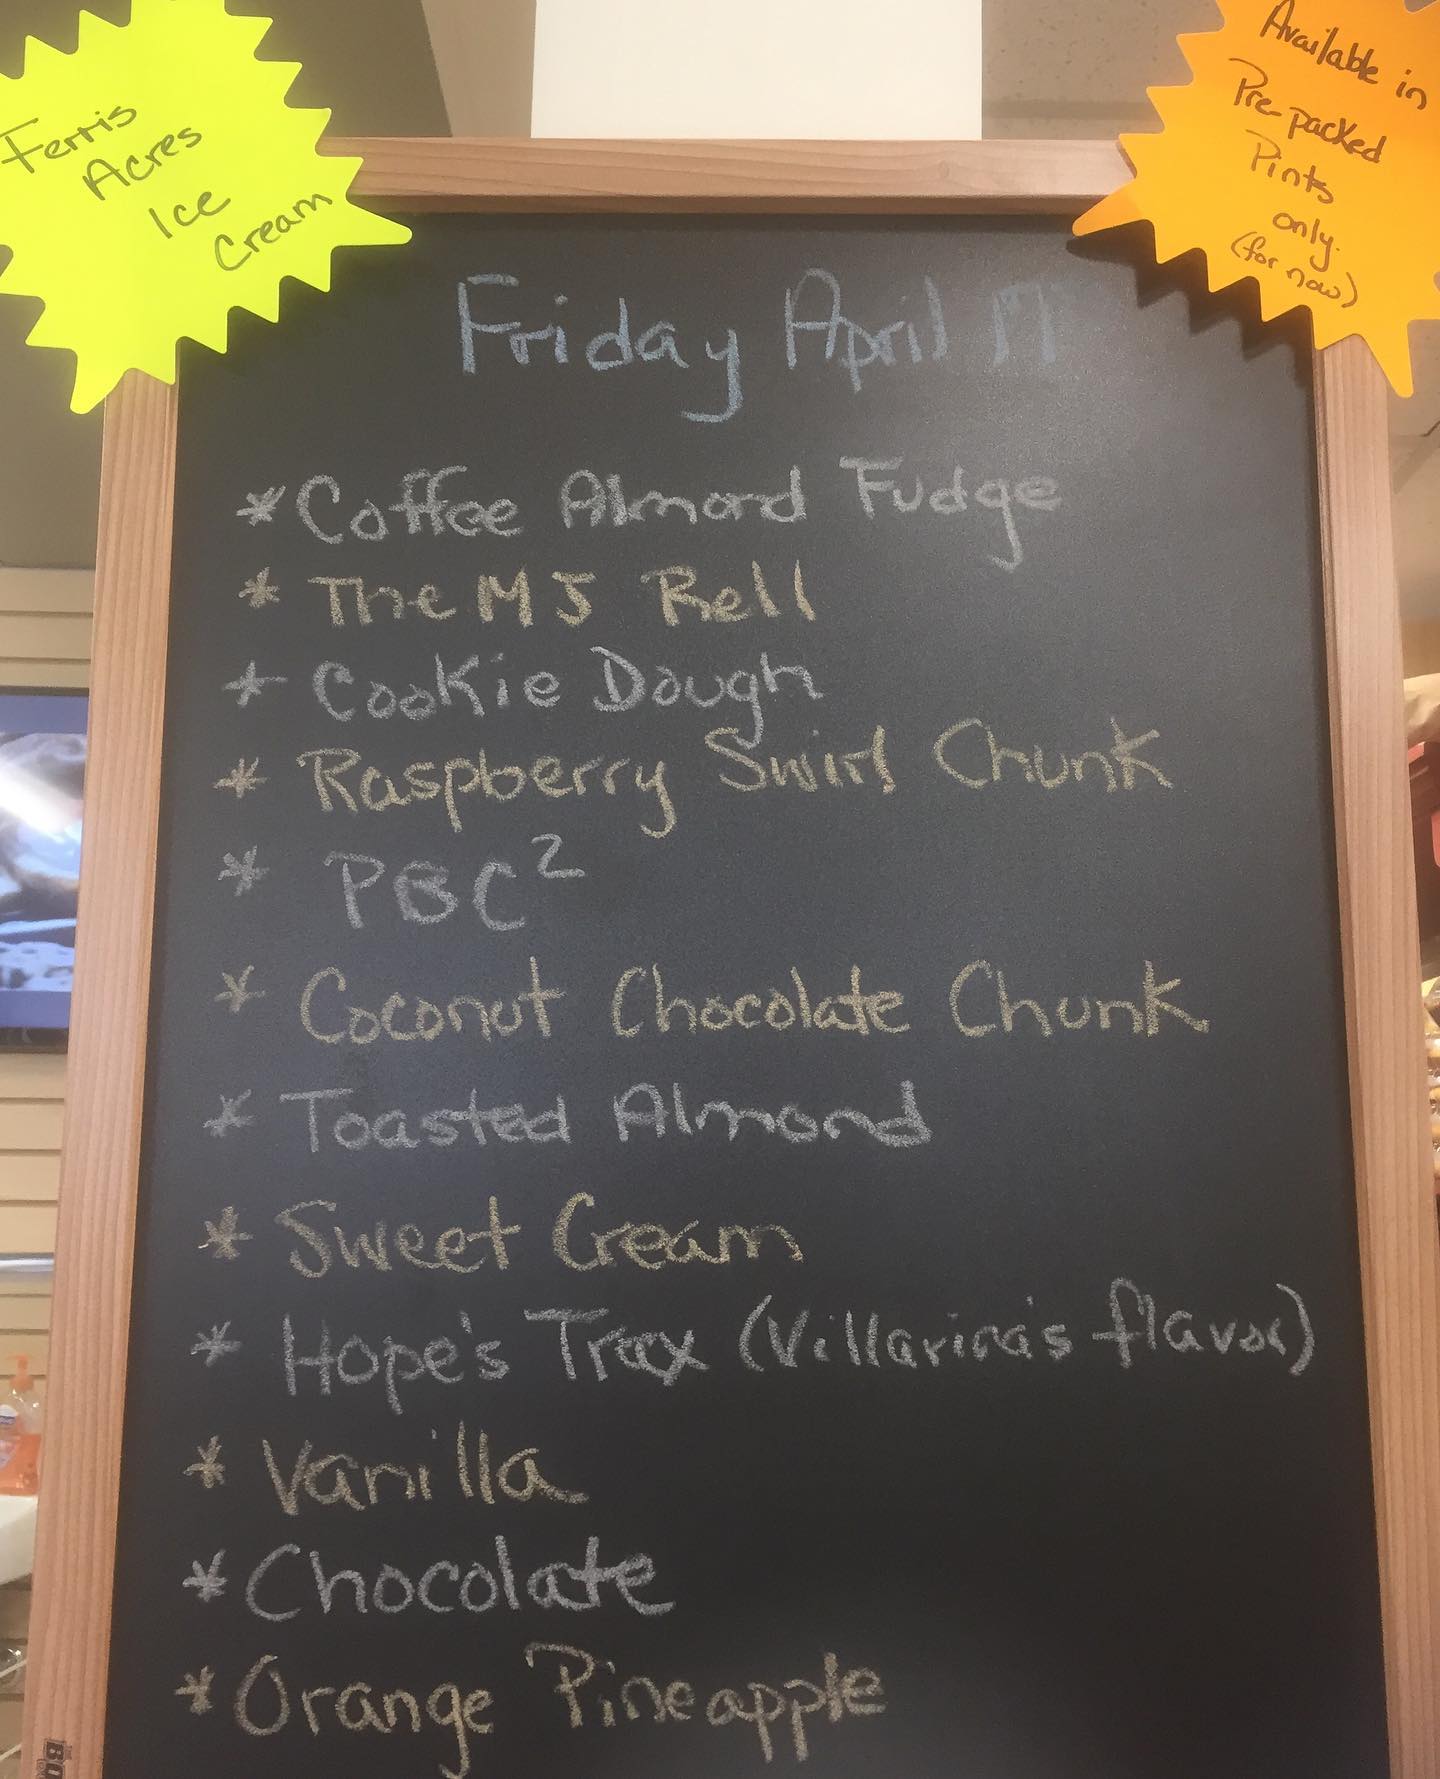 Ferris
Acres
Ice
Cream
Available in
Pre-packed
Pints
only.
(for now)
Friday April 17
* Coffee Almond Fudge
* The MJ Rell
* Cookie Dough
* Raspberry Swirl Chunk
* PBC²
* Coconut Chocolate Chunk
* Toasted Almond
* Sweet Cream
* Hope's Trax (Villarina's flavor)
* Vanilla
* Chocolate
* Orange Pineapple